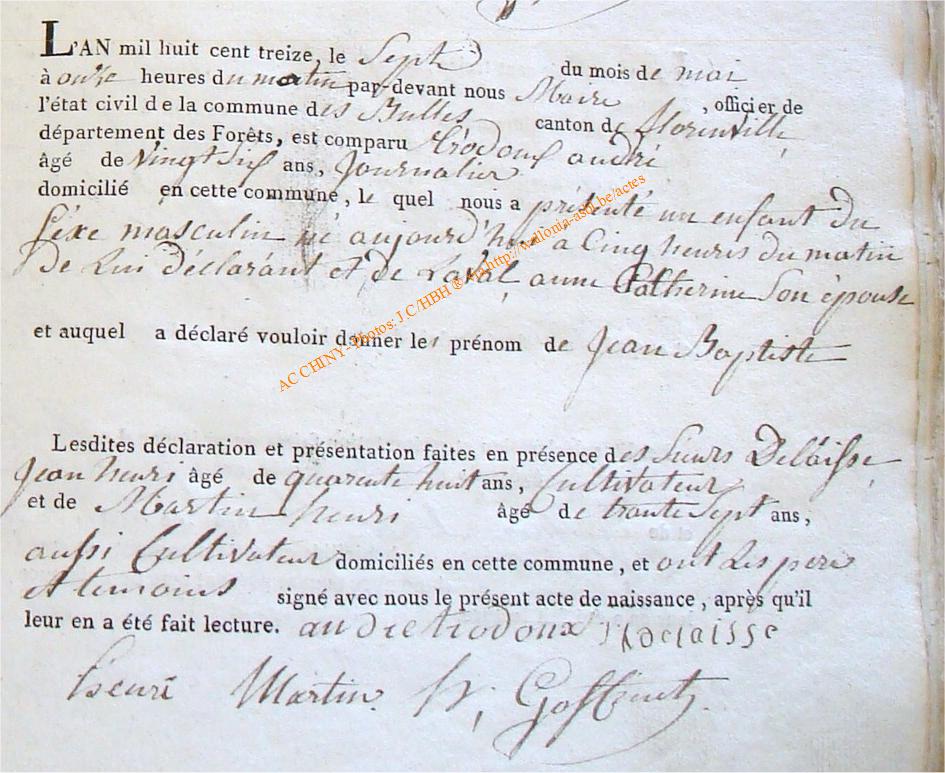 L'AN mil huit cent treize, le Sept du mois de mai
à onze heures du matin par-devant nous Maire , officier de
l'état civil de la commune des Bulles canton de florenville,
département des Forêts, est comparu trodoux andré
âgé de vingt six ans, Journalier
domicilié en cette commune, le quel nous a présenté un enfant du
Séxe masculin né aujourd'hui à Cinq heures du matin
De Lui déclarant et de Laval anne Catherine Son épouse
et auquel a déclaré vouloir donner les prénom de Jean Baptiste
AC CHINY - Photos: J.C/HBH ® http://wallonia-asbl.be/actes
Lesdites déclaration et présentation faites en présence des Sieurs Delaisse
Jean henri âgé de quarente huit ans, Cultivateur
et de Martin henri âgé de trante Sept ans,
aussi Cultivateur domiciliés en cette commune, et ont Les pere
et temoins signé avec nous le présent acte de naissance, après qu'il
leur en a été fait lecture. andre trodoux Delaisse
henri Martin. H, Goffinet